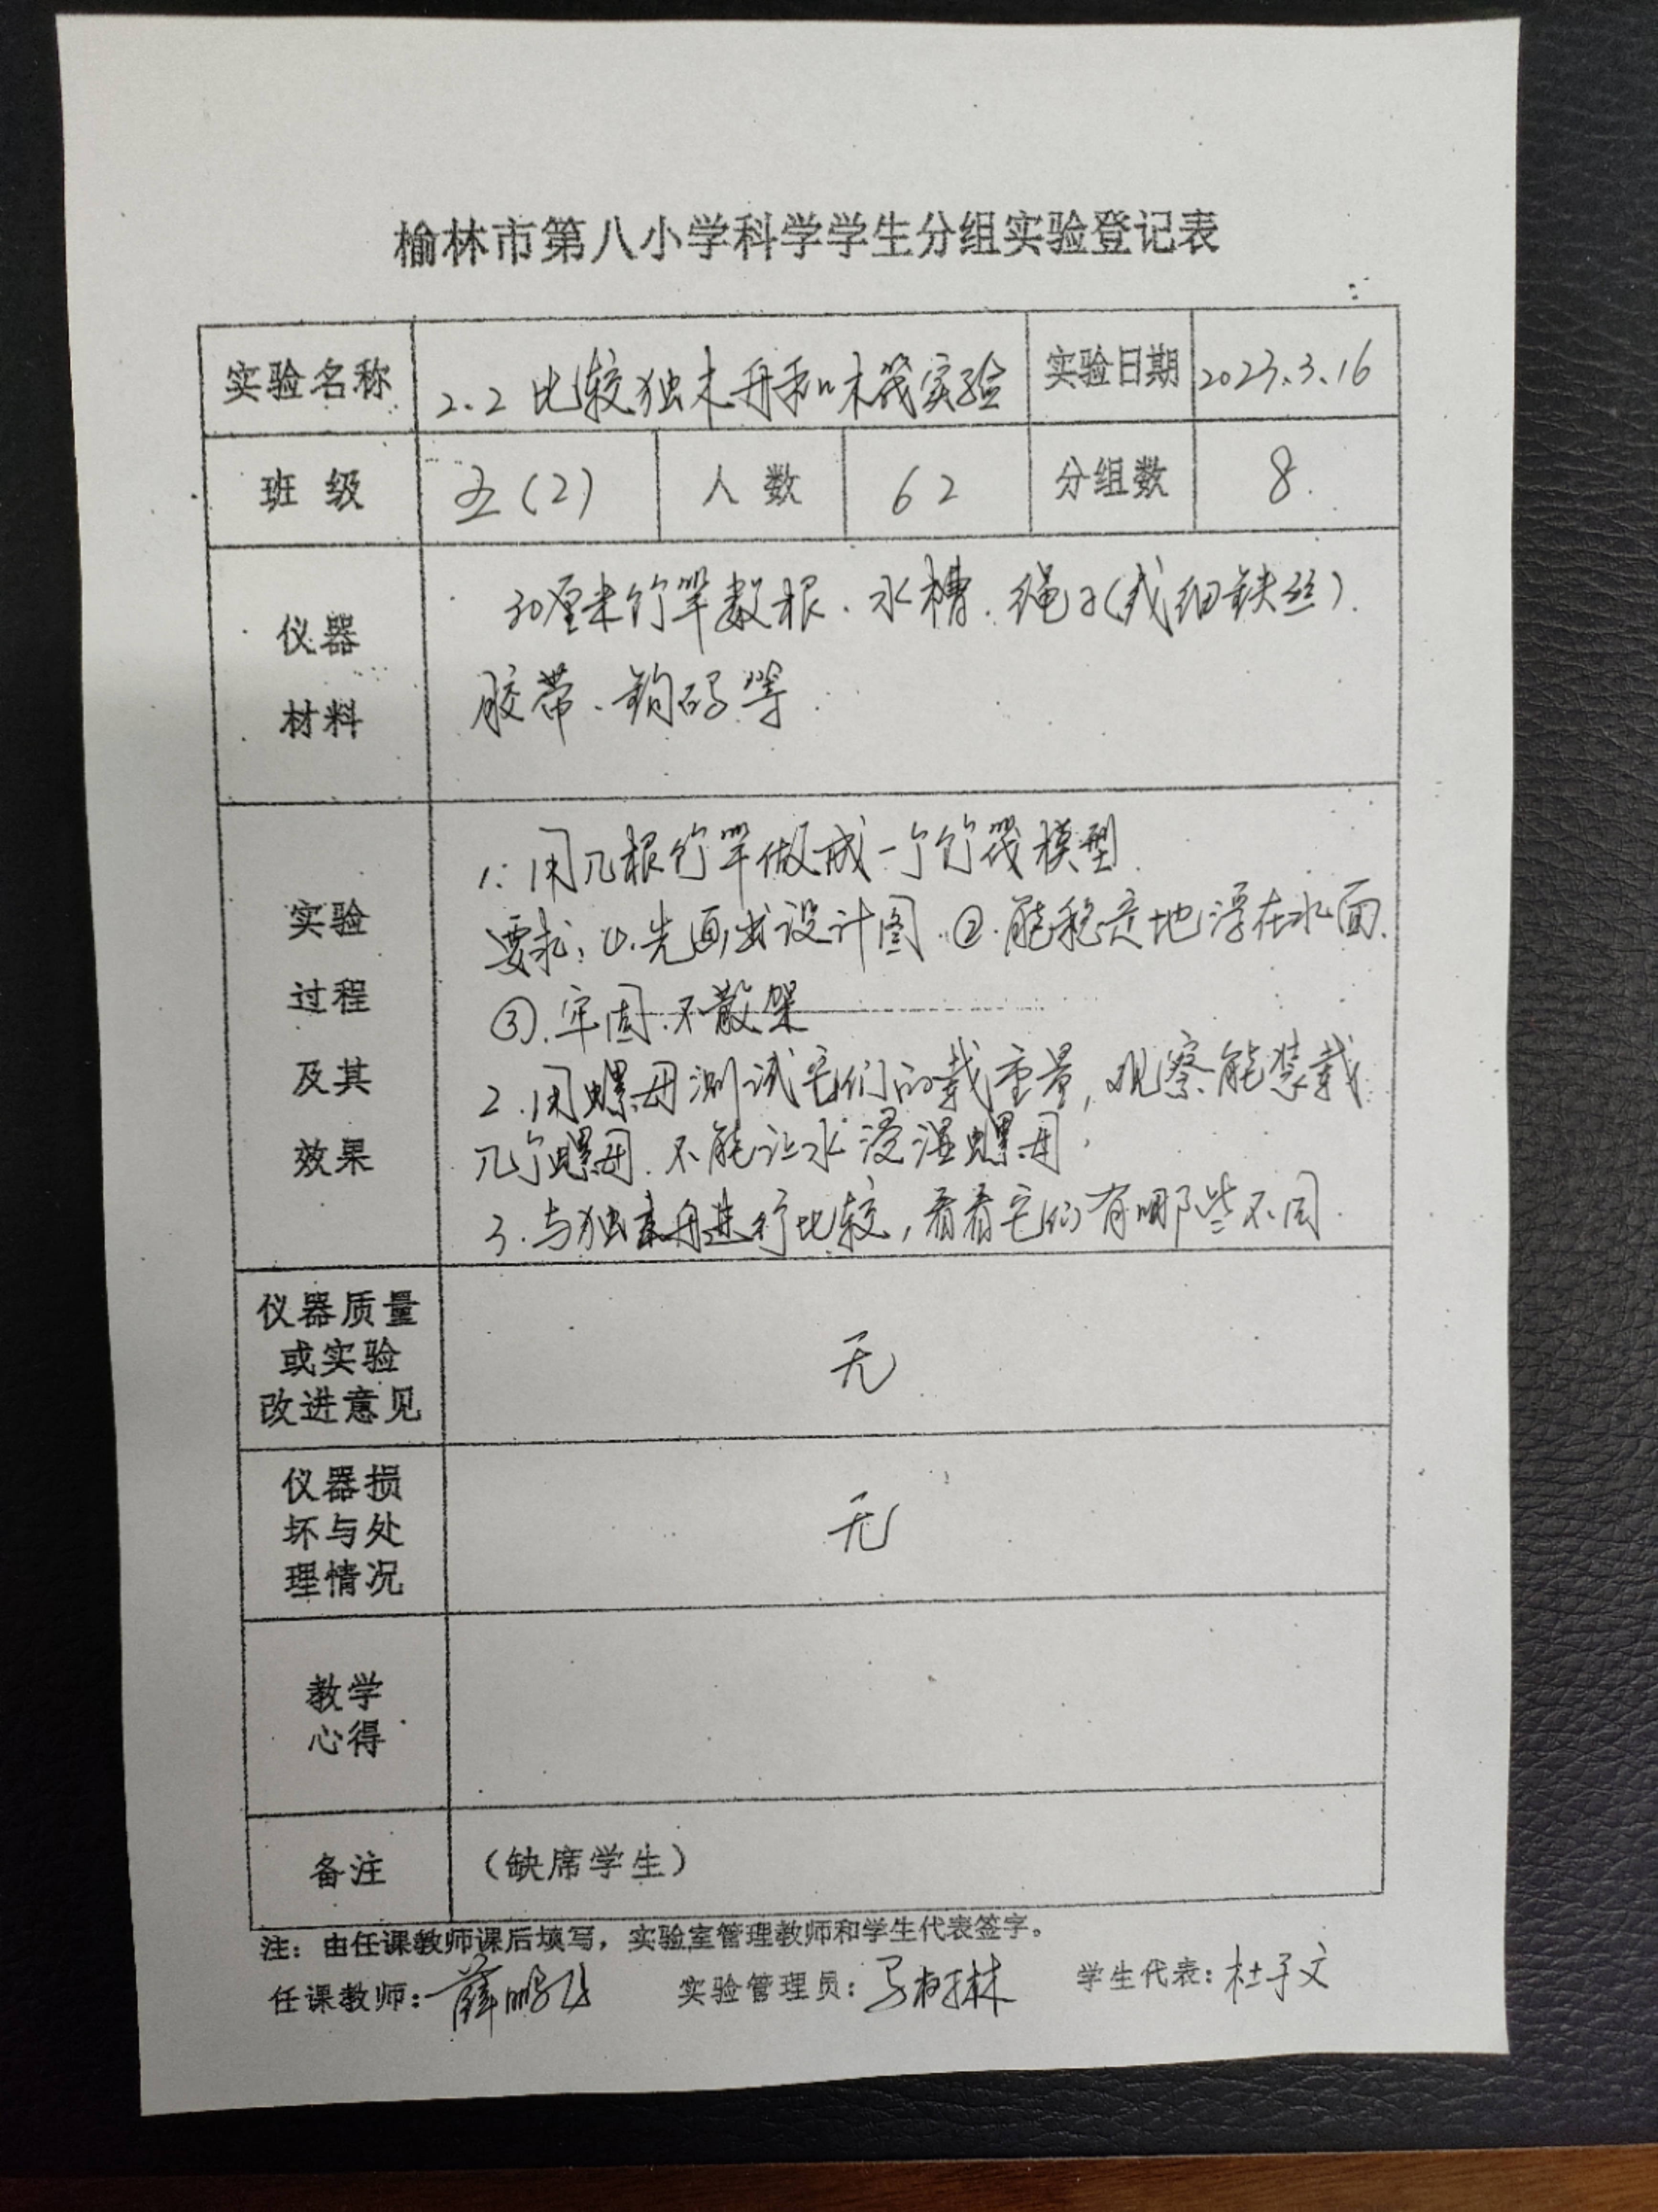 榆林市第八小学科学学生分组实验登记表
实验名称 2.2 比较独木舟和木筏实验 实验日期 2023.3.16
班级 五(2) 人数 62 分组数 8.
仪器
材料
30厘米竹竿数根、水槽、绳子(或细铁丝).
胶带、钩码等.
实验
过程
及其
效果
1. 用几根竹竿做成一个竹筏模型.
要求: ①.先画出设计图. ②.能稳定地浮在水面.
③.牢固.不散架
2.用螺母测试它们的载重量,观察能装载
几个螺母.不能让水浸湿螺母.
3.与独木舟进行比较,看看它们有哪些不同.
仪器质量
或实验
改进意见
无
仪器损
坏与处
理情况
无
教学
心得
备注 (缺席学生)
注:由任课教师课后填写,实验室管理教师和学生代表签字。
任课教师:薛鹏 实验管理员: 学生代表:杜子文